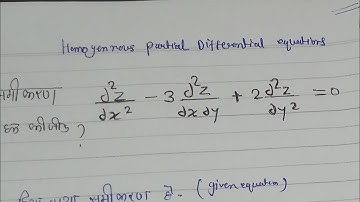 Homogennous partial Differential equations
समीकरण ∂²z/∂x² − 3 ∂²z/∂x∂y + 2 ∂²z/∂y² = 0
कीजीए ?
समीकरण है - (given equation)